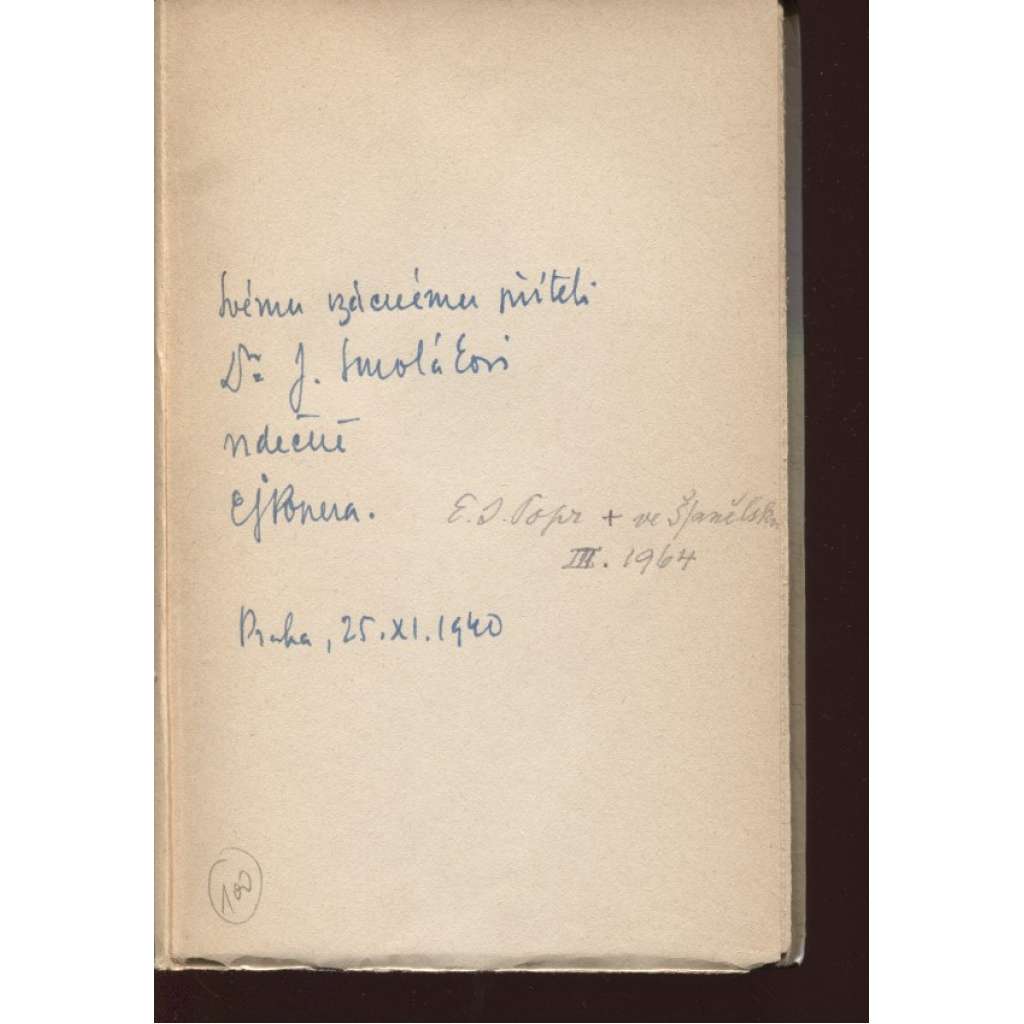 Svému vzácnému příteli
Dr. J. Smolákovi
vděčně
E. S. Popr + ve Španělsku
III. 1964
Praha, 25.XI.1940
100